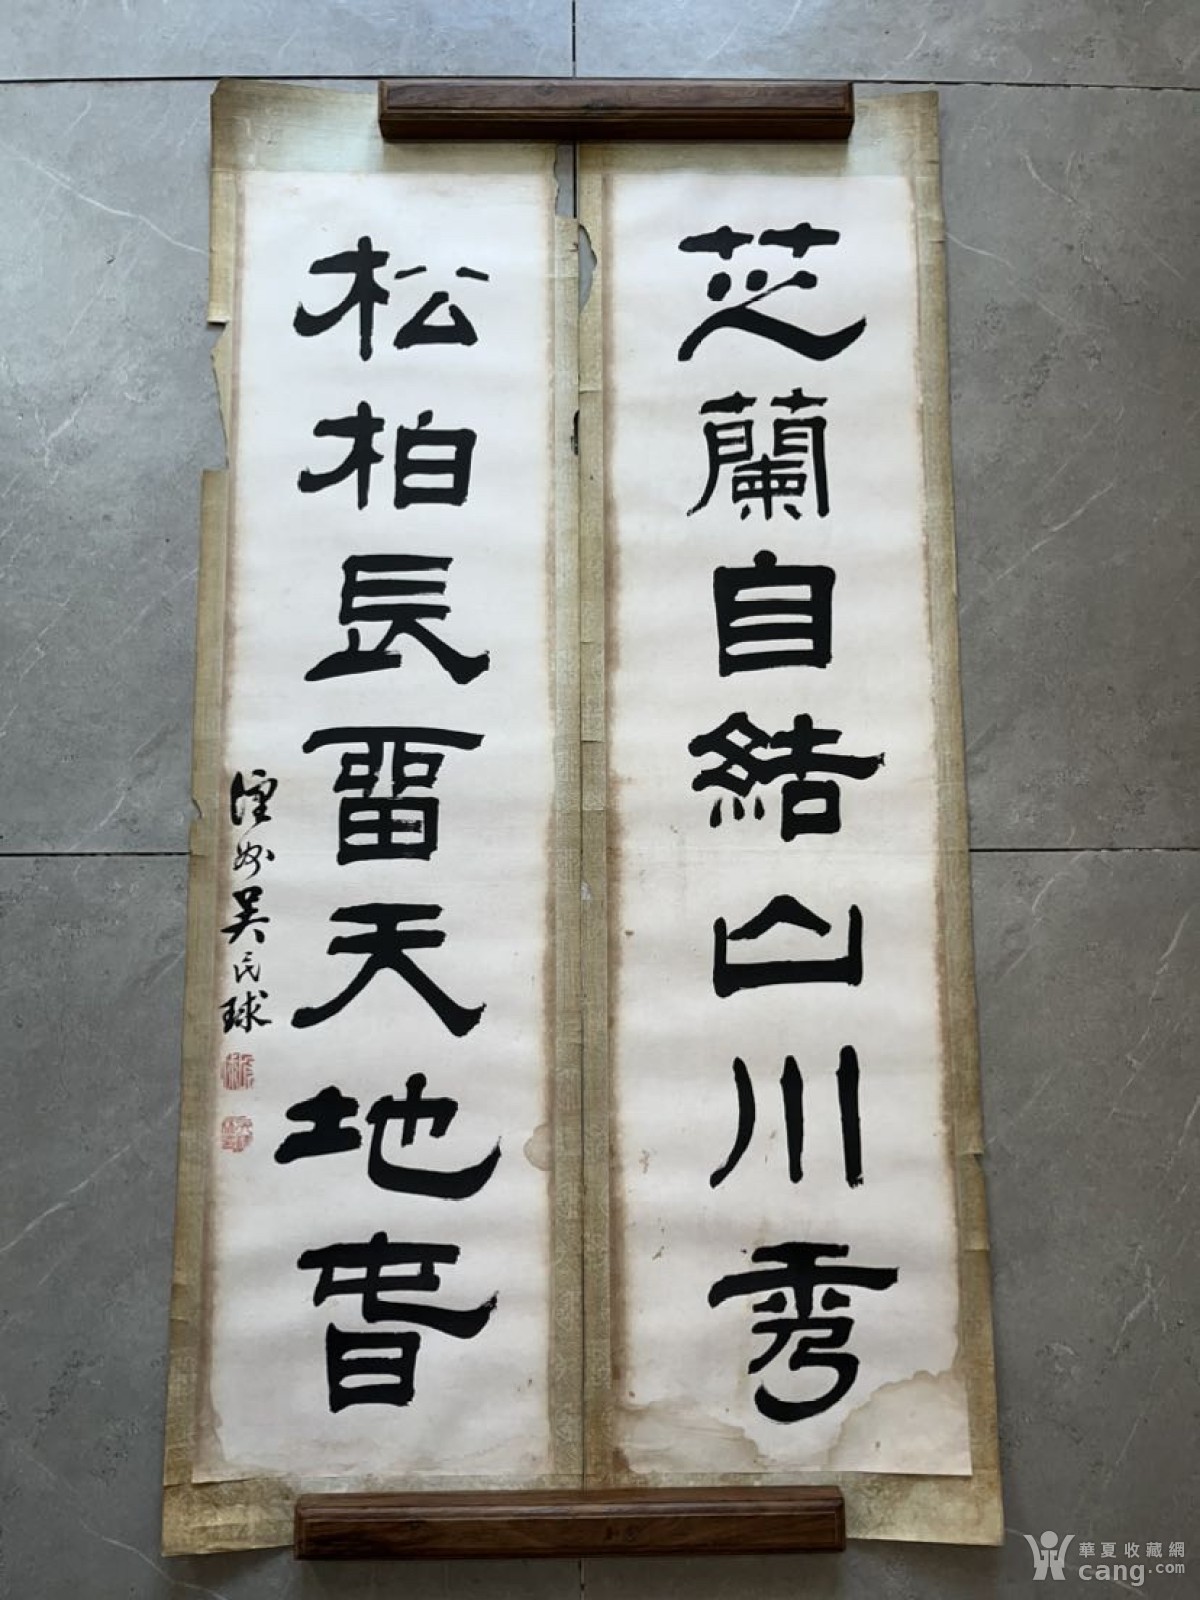 芝蘭自結山川秀
松柏長畱天地旾
吴民球
華夏收藏網
cang.com